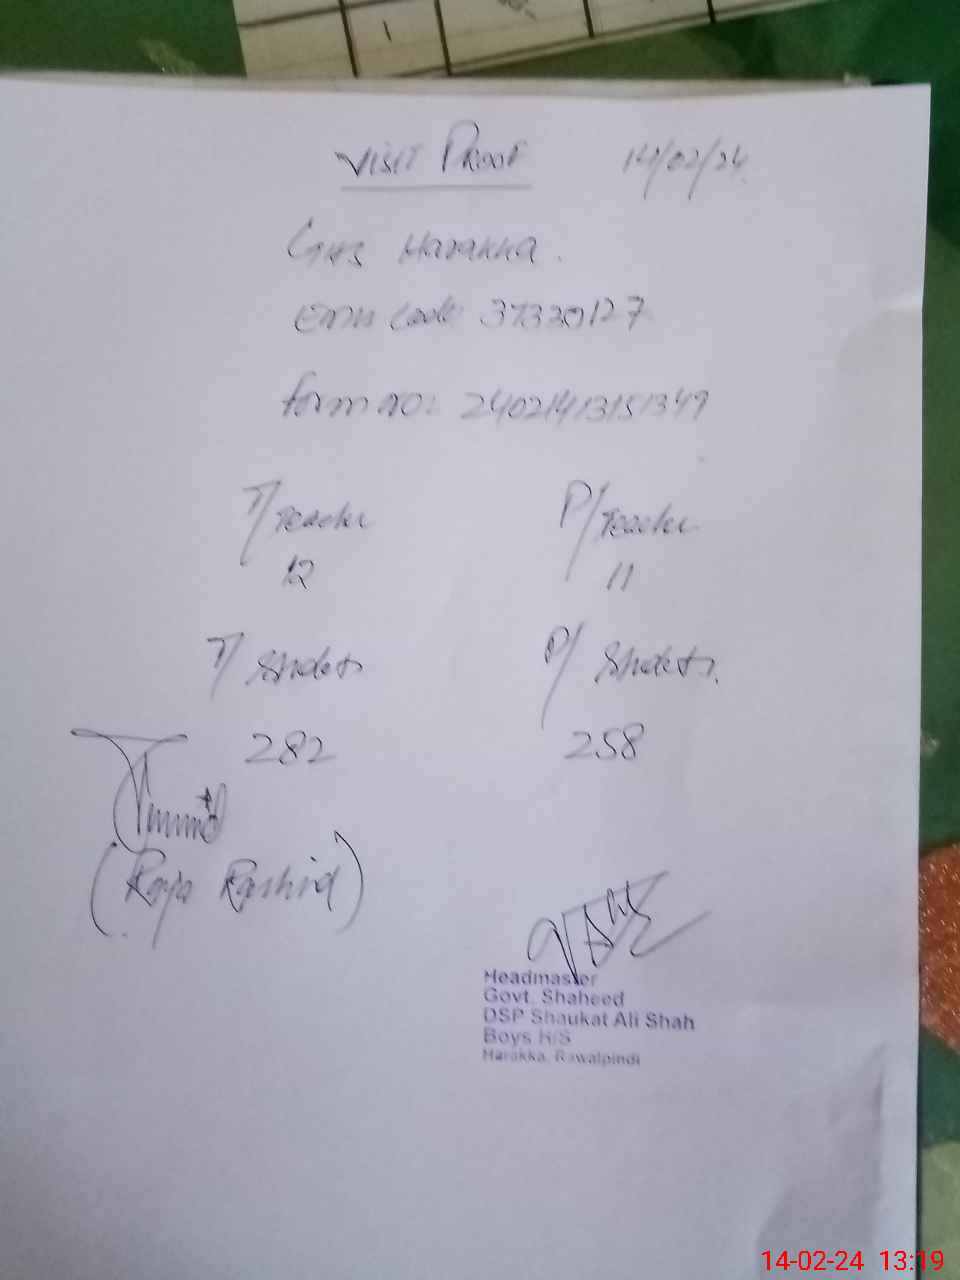 VISIT PROOF 14/02/24
GHS Harakka.
EMIS Code: 37330127
Form no: 24021413151349
T/Teacher P/Teacher
12 11
T/Students P/Students.
282 258
(Raja Rashid)
Headmaster
Govt. Shaheed
DSP Shaukat Ali Shah
Boys H/S
Harakka, Rawalpindi
14-02-24 13:19